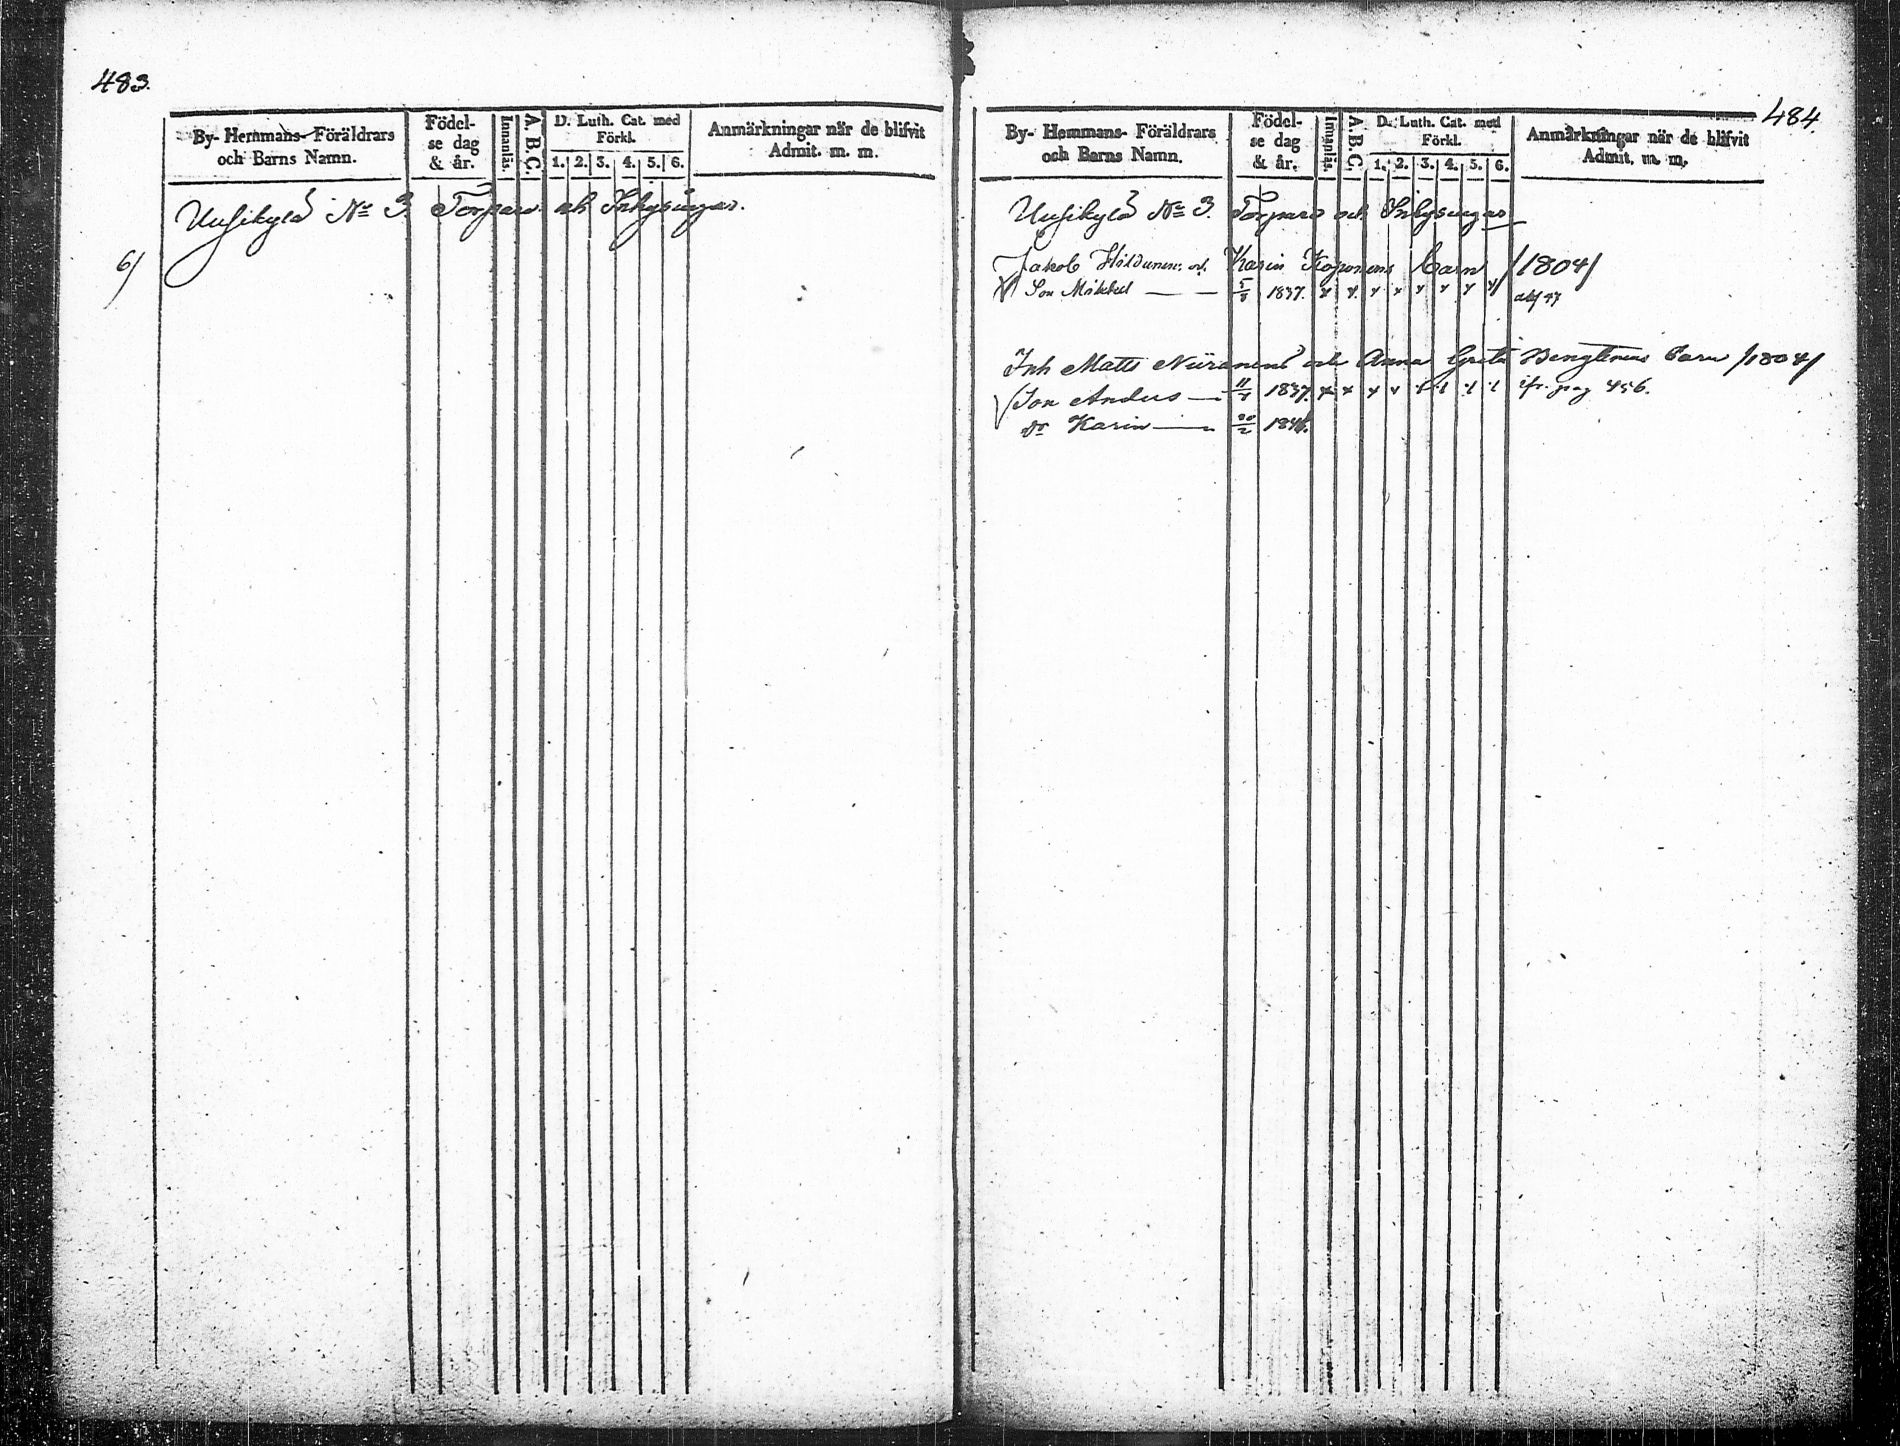 483.
By- Hemmans- Föräldrars och Barns Namn.
Födelse dag & år.
Innanläs.
A. B. C.
D. Luth. Cat. med Förkl.
1. 2. 3. 4. 5. 6.
Anmärkningar när de blifvit Admit. m. m.
Uusikylä No 3. Torpare och Inhysingar.
6/
484.
By- Hemmans- Föräldrars och Barns Namn.
Födelse dag & år.
Innanläs.
A. B. C.
D. Luth. Cat. med Förkl.
1. 2. 3. 4. 5. 6.
Anmärkningar när de blifvit Admit. m. m.
Uusikylä No 3. Torpare och Inhysingar
Jakob och Karin Koponens barn /1804/
Son Mikkel 5/8 1837.
Inh Matts Niiranens och Anna Greta barn /1804/
Son Anders 11/4 1837. pag 456.
Dr Karin 20/2